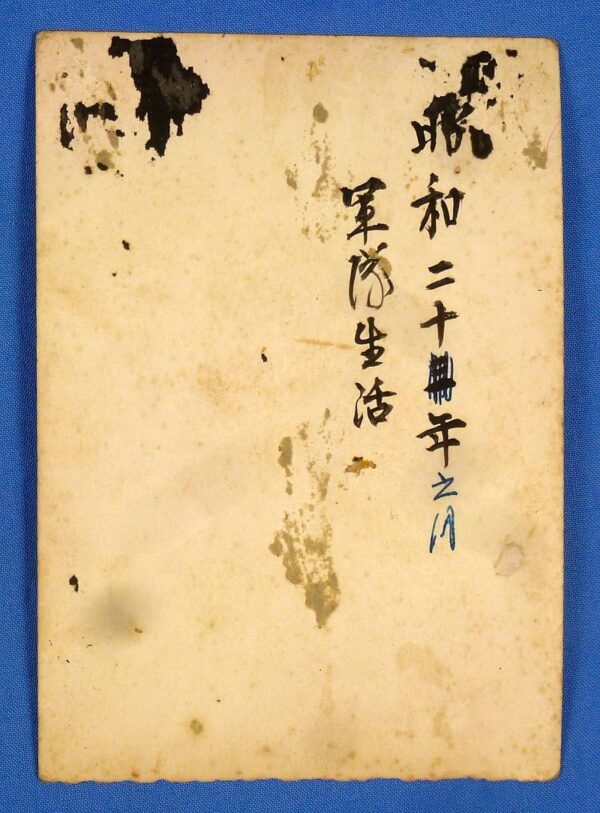 昭和二十年月
軍隊生活